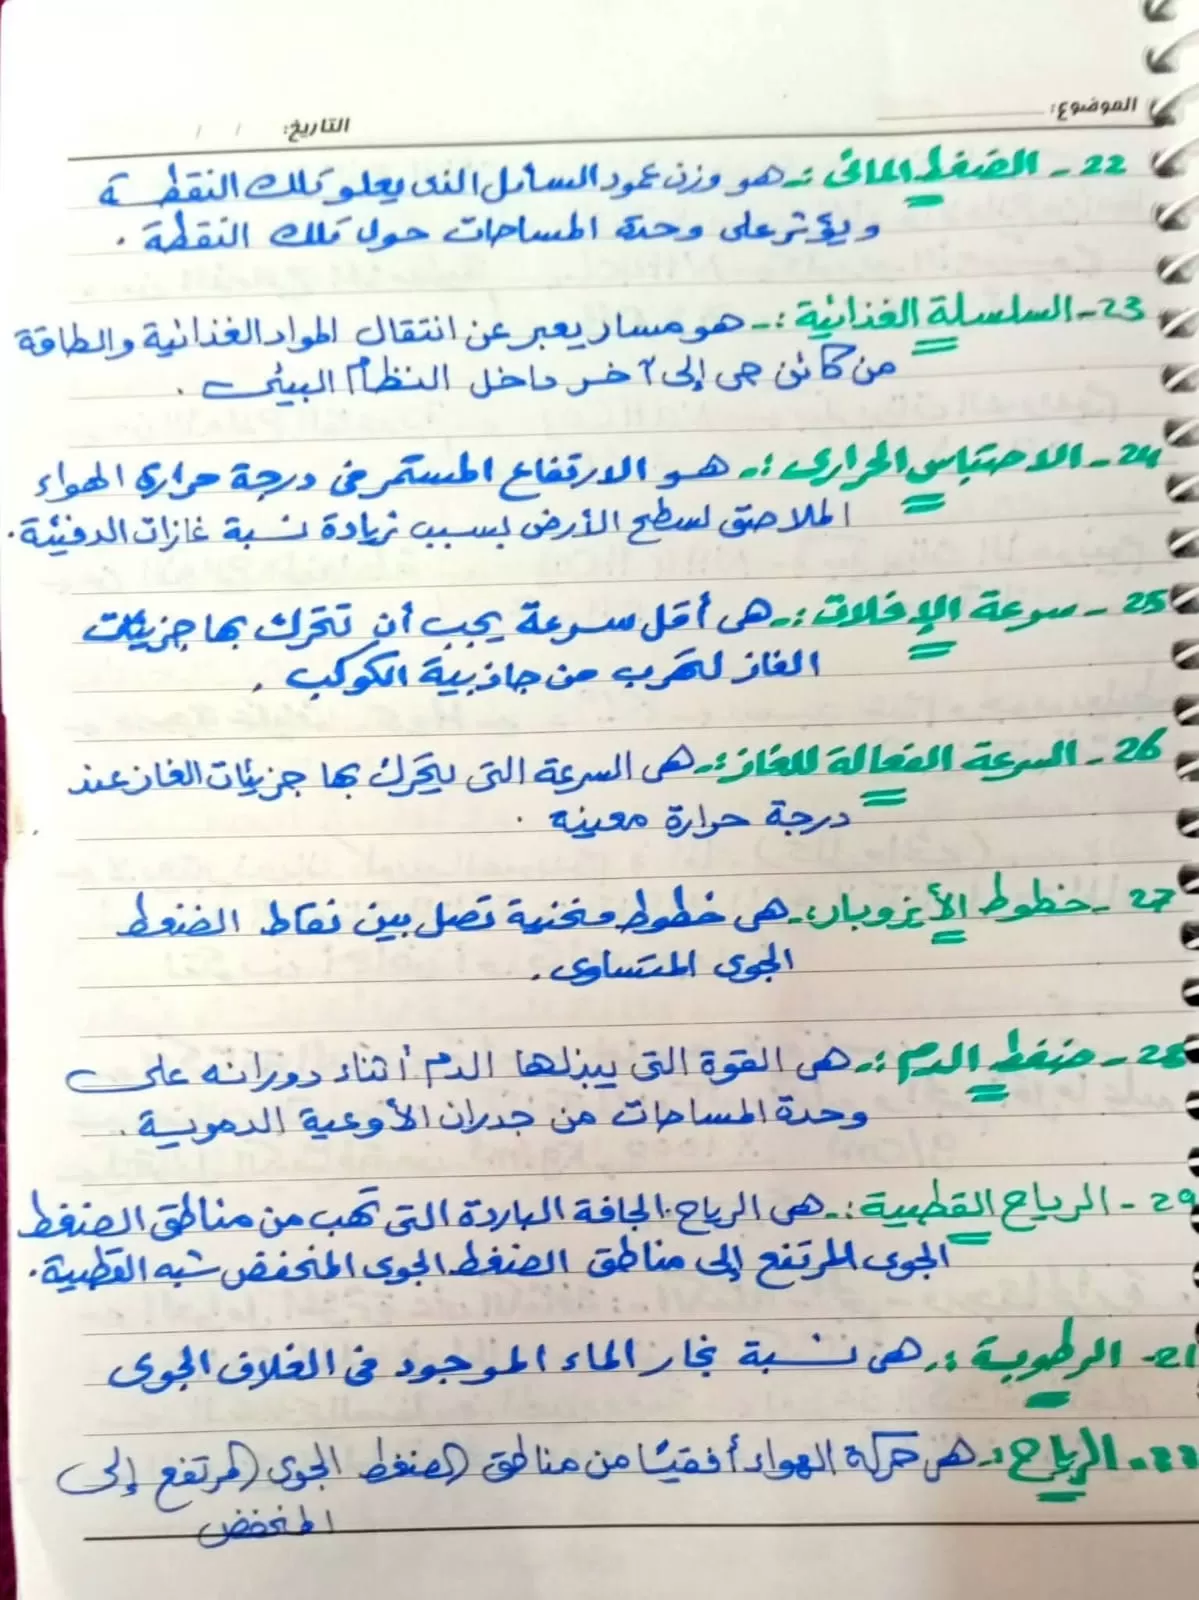 الموضوع:
التاريخ: / /
22- الضغط المائى :- هو وزن عمود السائل الذى يعلو تلك النقطة
ويؤثر على وحدة المساحات حول تلك النقطة .
23- السلسلة الغذائية :- هو مسار يعبر عن انتقال المواد الغذائية والطاقة
من كائن حى إلى آخر داخل النظام البيئى .
24- الاحتباس الحرارى :- هو الارتفاع المستمر فى درجة حرارة الهواء
الملاصق لسطح الأرض بسبب زيادة نسبة غازات الدفيئة .
25- سرعة الإفلات :- هى أقل سرعة يجب أن تتحرك بها جزيئات
الغاز لتهرب من جاذبية الكوكب .
26- السرعة الفعالة للغاز :- هى السرعة التى يتحرك بها جزيئات الغاز عند
درجة حرارة معينه .
27- خطوط الأيزوبار :- هى خطوط منحنية تصل بين نقاط الضغط
الجوى المتساوى .
28- ضغط الدم :- هى القوة التى يبذلها الدم أثناء دورانه على
وحدة المساحات من جدران الأوعية الدموية .
29- الرياح القطبية :- هى الرياح الجافة الباردة التى تهب من مناطق الضغط
الجوى المرتفع إلى مناطق الضغط الجوى المنخفض شبه القطبية .
- الرطوبة :- هى نسبة بخار الماء الموجود فى الغلاف الجوى
- الرياح :- هى حركة الهواء أفقيًا من مناطق الضغط الجوى المرتفع إلى
المنخفض